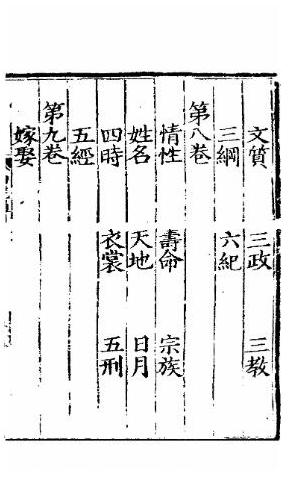 文質 三政 三教
三綱 六紀
第八卷
情性 壽命 宗族
姓名 天地 日月
四時 衣裳 五刑
五經
第九卷
嫁娶